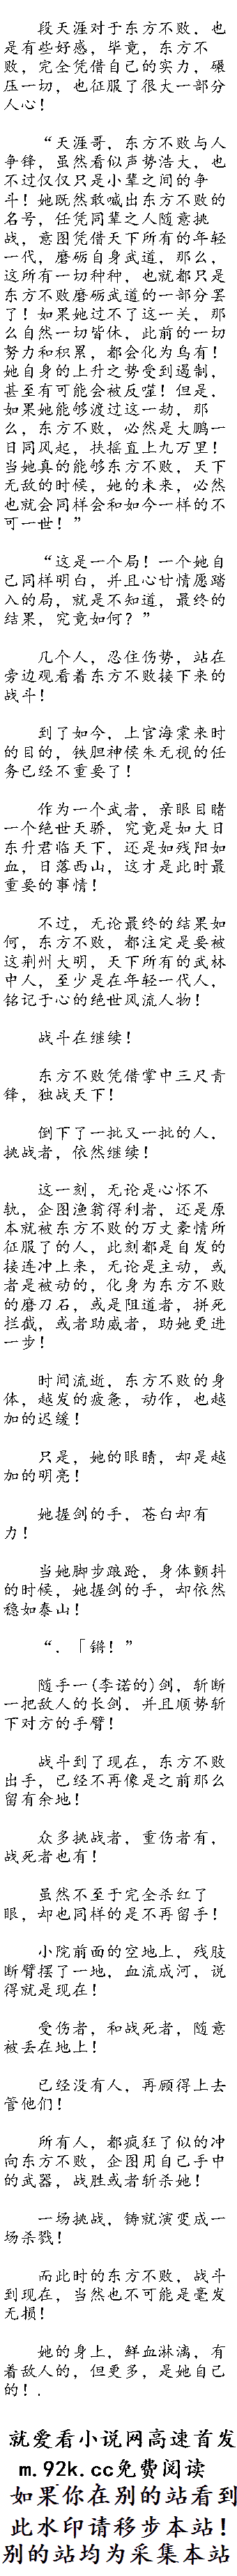 段天涯对于东方不败，也
是有些好感，毕竟，东方不
败，完全凭借自己的实力，碾
压一切，也征服了很大一部分
人心！
“天涯哥，东方不败与人
争锋，虽然看似声势浩大，也
不过仅仅只是小辈之间的争
斗！她既然敢喊出东方不败的
名号，任凭同辈之人随意挑
战，意图凭借天下所有的年轻
一代，磨砺自身武道，那么，
这所有一切种种，也就都只是
东方不败磨砺武道的一部分罢
了！如果她过不了这一关，那
么自然一切皆休，此前的一切
努力和积累，都会化为乌有！
她自身的上升之势受到遏制，
甚至有可能会被反噬！但是，
如果她能够渡过这一劫，那
么，东方不败，必然是大鹏一
日同风起，扶摇直上九万里！
当她真的能够东方不败，天下
无敌的时候，她的未来，必然
也就会同样会和如今一样的不
可一世！”
“这是一个局！一个她自
己同样明白，并且心甘情愿踏
入的局，就是不知道，最终的
结果，究竟如何？”
几个人，忍住伤势，站在
旁边观看着东方不败接下来的
战斗！
到了如今，上官海棠来时
的目的，铁胆神侯朱无视的任
务已经不重要了！
作为一个武者，亲眼目睹
一个绝世天骄，究竟是如大日
东升君临天下，还是如残阳如
血，日落西山，这才是此时最
重要的事情！
不过，无论最终的结果如
何，东方不败，都注定是要被
这荆州大明，天下所有的武林
中人，至少是在年轻一代人，
铭记于心的绝世风流人物！
战斗在继续！
东方不败凭借掌中三尺青
锋，独战天下！
倒下了一批又一批的人，
挑战者，依然继续！
这一刻，无论是心怀不
轨，企图渔翁得利者，还是原
本就被东方不败的万丈豪情所
征服了的人，此刻都是自发的
接连冲上来，无论是主动，或
者是被动的，化身为东方不败
的磨刀石，或是阻道者，拼死
拦截，或者助威者，助她更进
一步！
时间流逝，东方不败的身
体，越发的疲惫，动作，也越
加的迟缓！
只是，她的眼睛，却是越
加的明亮！
她握剑的手，苍白却有
力！
当她脚步踉跄，身体颤抖
的时候，她握剑的手，却依然
稳如泰山！
“．「锵！”
随手一(李诺的)剑，斩断
一把敌人的长剑，并且顺势斩
下对方的手臂！
战斗到了现在，东方不败
出手，已经不再像是之前那么
留有余地！
众多挑战者，重伤者有，
战死者也有！
虽然不至于完全杀红了
眼，却也同样的是不再留手！
小院前面的空地上，残肢
断臂摆了一地，血流成河，说
得就是现在！
受伤者，和战死者，随意
被丢在地上！
已经没有人，再顾得上去
管他们！
所有人，都疯狂了似的冲
向东方不败，企图用自己手中
的武器，战胜或者斩杀她！
一场挑战，铸就演变成一
场杀戮！
而此时的东方不败，战斗
到现在，当然也不可能是毫发
无损！
她的身上，鲜血淋漓，有
着敌人的，但更多，是她自己
的！．
就爱看小说网高速首发
m.92k.cc免费阅读
如果你在别的站看到
此水印请移步本站！
别的站均为采集本站